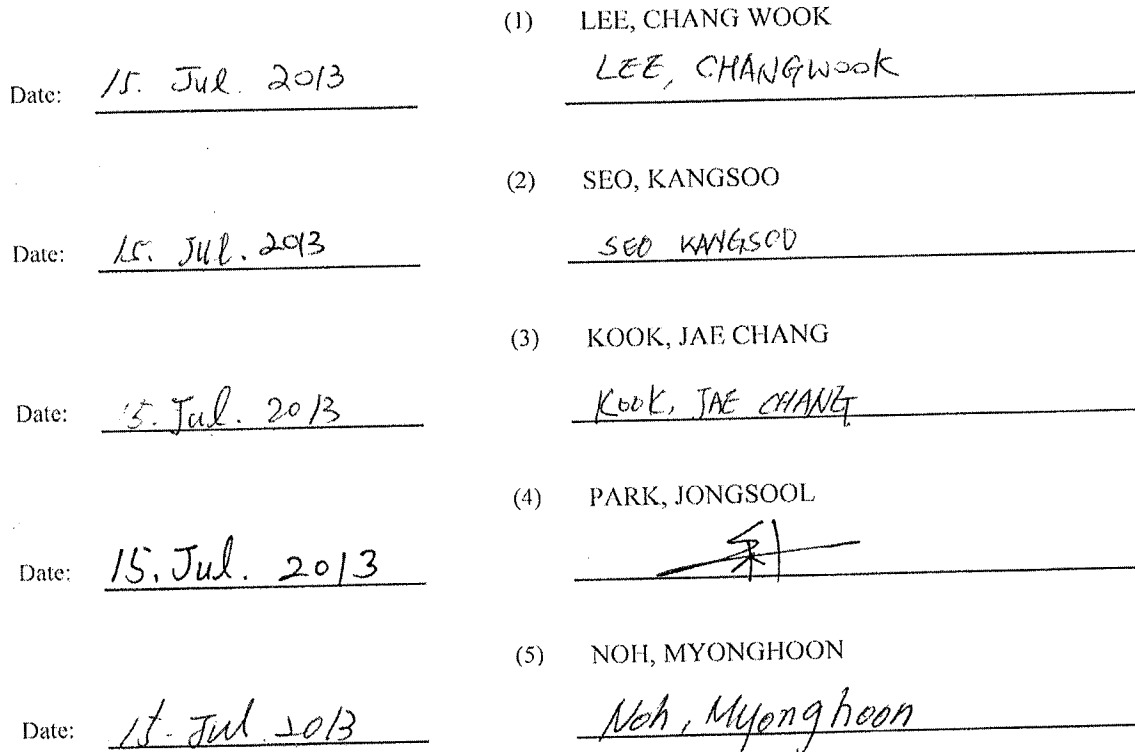 (1) LEE, CHANG WOOK
Date: 15. Jul. 2013 LEE, CHANGWOOK
(2) SEO, KANGSOO
Date: 15. JUl. 2013 SEO KANGSOO
(3) KOOK, JAE CHANG
Date: 15. Jul. 2013 KOOK, JAE CHANG
(4) PARK, JONGSOOL
Date: 15. Jul. 2013
(5) NOH, MYONGHOON
Date: 15. Jul 2013 Noh, Myonghoon